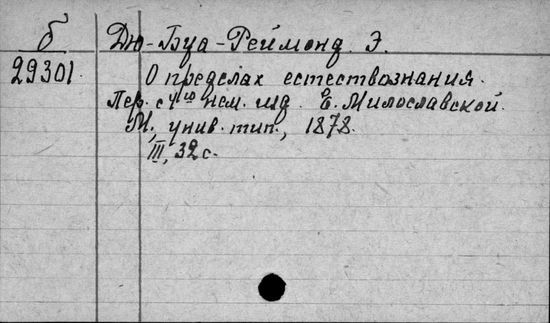 б Дю-Буа-Реймонд Э.
29301 О пределах естествознания.
Пер. с 4го нем. изд. Е. Милославской.
М., унив. тип., 1878.
III, 32 с.